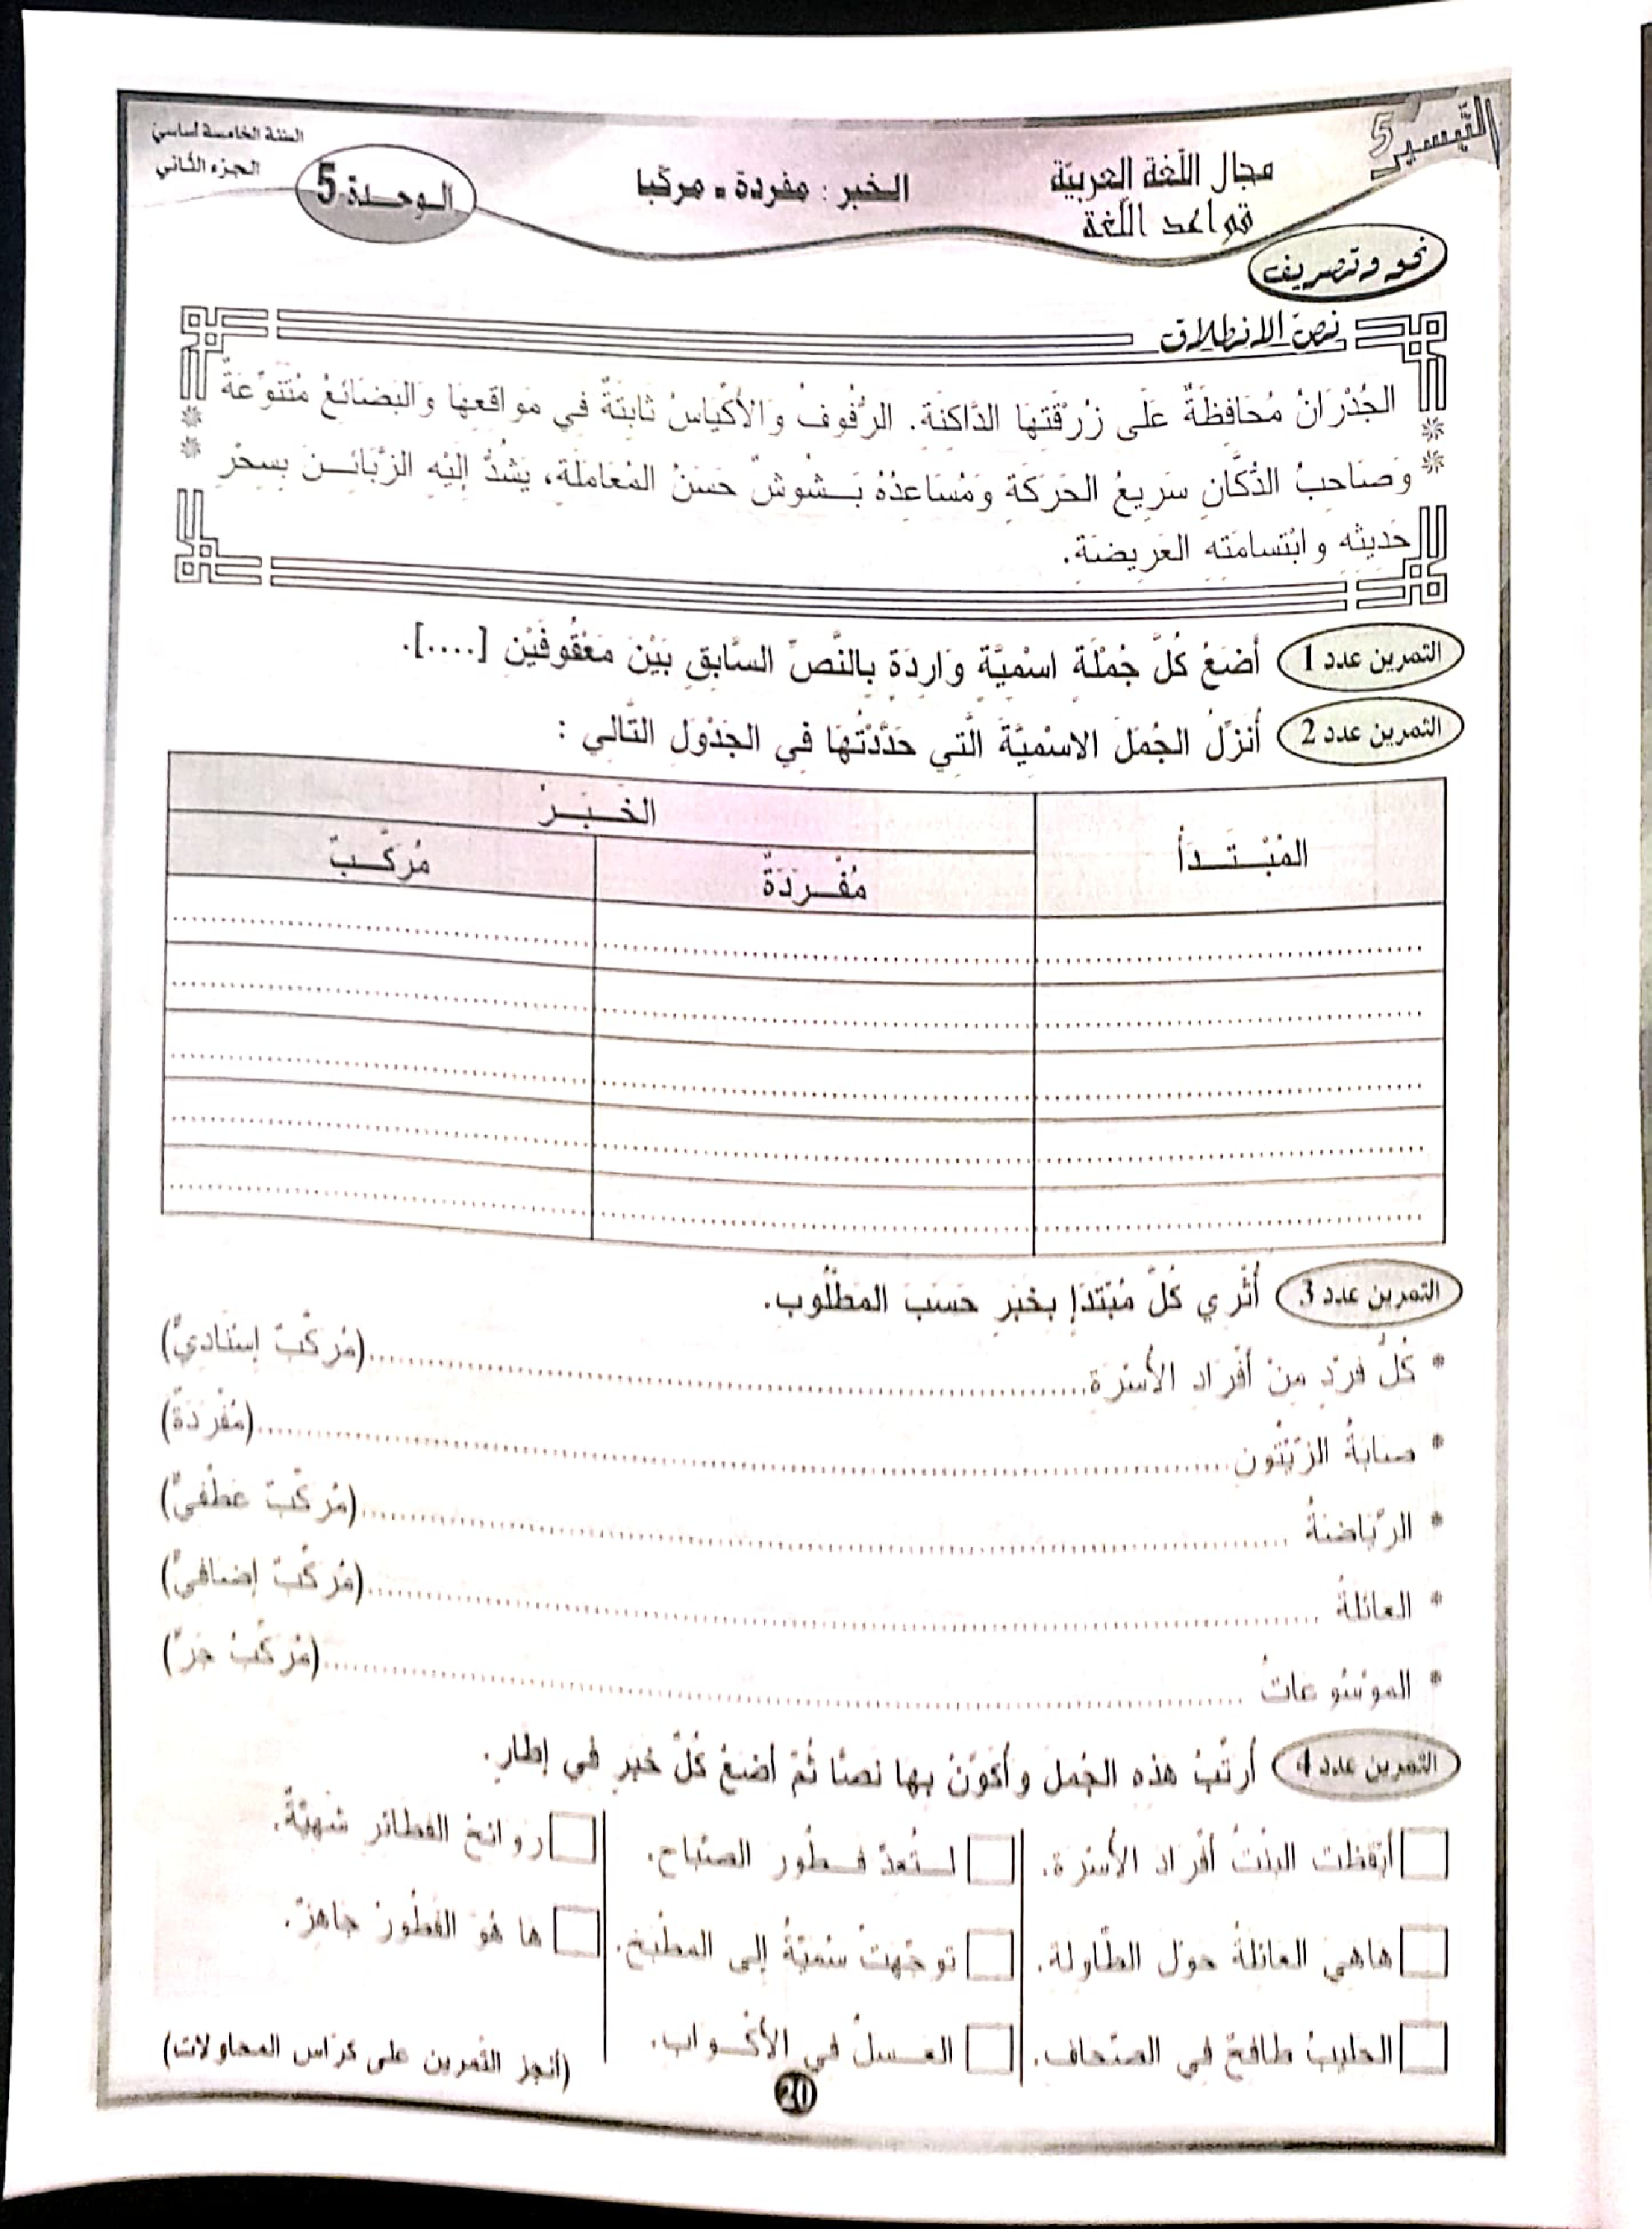 التيسير 5
مجال اللّغة العربيّة
قواعد اللّغة
الخبر : مفردة - مركبا
السنة الخامسة أساسي
الجزء الثاني
الوحدة 5
نحو وتصريف
نصّ الانطلاق
الجُدْرَانُ مُحَافِظَةٌ عَلَى زُرْقَتِهَا الدَّاكِنَةِ. الرُّفُوفُ وَالأَكْيَاسُ ثَابِتَةٌ فِي مَوَاقِعِهَا وَالبَضَائِعُ مُتَنَوِّعَةٌ
وَصَاحِبُ الدُّكَّانِ سَرِيعُ الحَرَكَةِ وَمُسَاعِدُهُ بَشُوشٌ حَسَنُ المُعَامَلَةِ، يَشُدُّ إِلَيْهِ الزَّبَائِنَ بِسِحْرِ
حَدِيثِهِ وابْتسامَتِهِ العَرِيضَةِ.
التمرين عدد 1 أَضَعُ كُلَّ جُمْلَةٍ اسْمِيَّةٍ وَارِدَةٍ بِالنَّصِّ السَّابِقِ بَيْنَ مَعْقُوفَيْنِ [....].
التمرين عدد 2 أُنَزِّلُ الجُمَلَ الاسْمِيَّةَ الَّتِي حَدَّدْتُهَا فِي الجَدْوَلِ التَّالِي :
المُبْتَدَأُ
الخَبَرُ
مُفْرَدَةٌ
مُرَكَّبٌ
التمرين عدد 3 أُثْرِي كُلَّ مُبْتَدَإٍ بِخَبَرٍ حَسَبَ المَطْلُوبِ.
* كُلُّ فَرْدٍ مِنْ أَفْرَادِ الأُسْرَةِ..........(مُرَكَّبٌ إِسْنَادِيٌّ)
* صَابَةُ الزَّيْتُونِ..........(مُفْرَدَةٌ)
* الرِّيَاضَةُ ..........(مُرَكَّبٌ عَطْفِيٌّ)
* العَائِلَةُ ..........(مُرَكَّبٌ إِضَافِيٌّ)
* المَوْسُوعَاتُ ..........(مُرَكَّبُ جَرٍّ)
التمرين عدد 4 أُرَتِّبُ هَذِهِ الجُمَلَ وَأُكَوِّنُ بِهَا نَصًّا ثُمَّ أَضَعُ كُلَّ خَبَرٍ فِي إِطَارٍ.
أَيْقَظَتِ البِنْتُ أَفْرَادَ الأُسْرَةِ.
لِتُعِدَّ فُطُورَ الصَّبَاحِ.
رَوَائِحُ الفَطَائِرِ شَهِيَّةٌ.
هَاهِيَ العَائِلَةُ حَوْلَ الطَّاوِلَةِ.
تَوَجَّهَتْ سُمَيَّةُ إِلَى المَطْبَخِ.
هَا هُوَ الفُطُورُ جَاهِزٌ.
الحَلِيبُ طَافِحٌ فِي الصِّحَافِ.
العَسَلُ فِي الأَكْوَابِ.
(أنجز التمرين على كرّاس المحاولات)
20